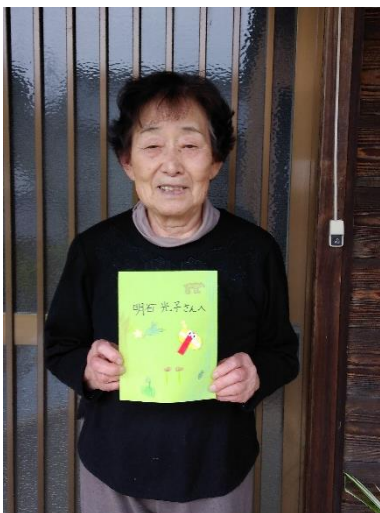 明石 光子さんへ